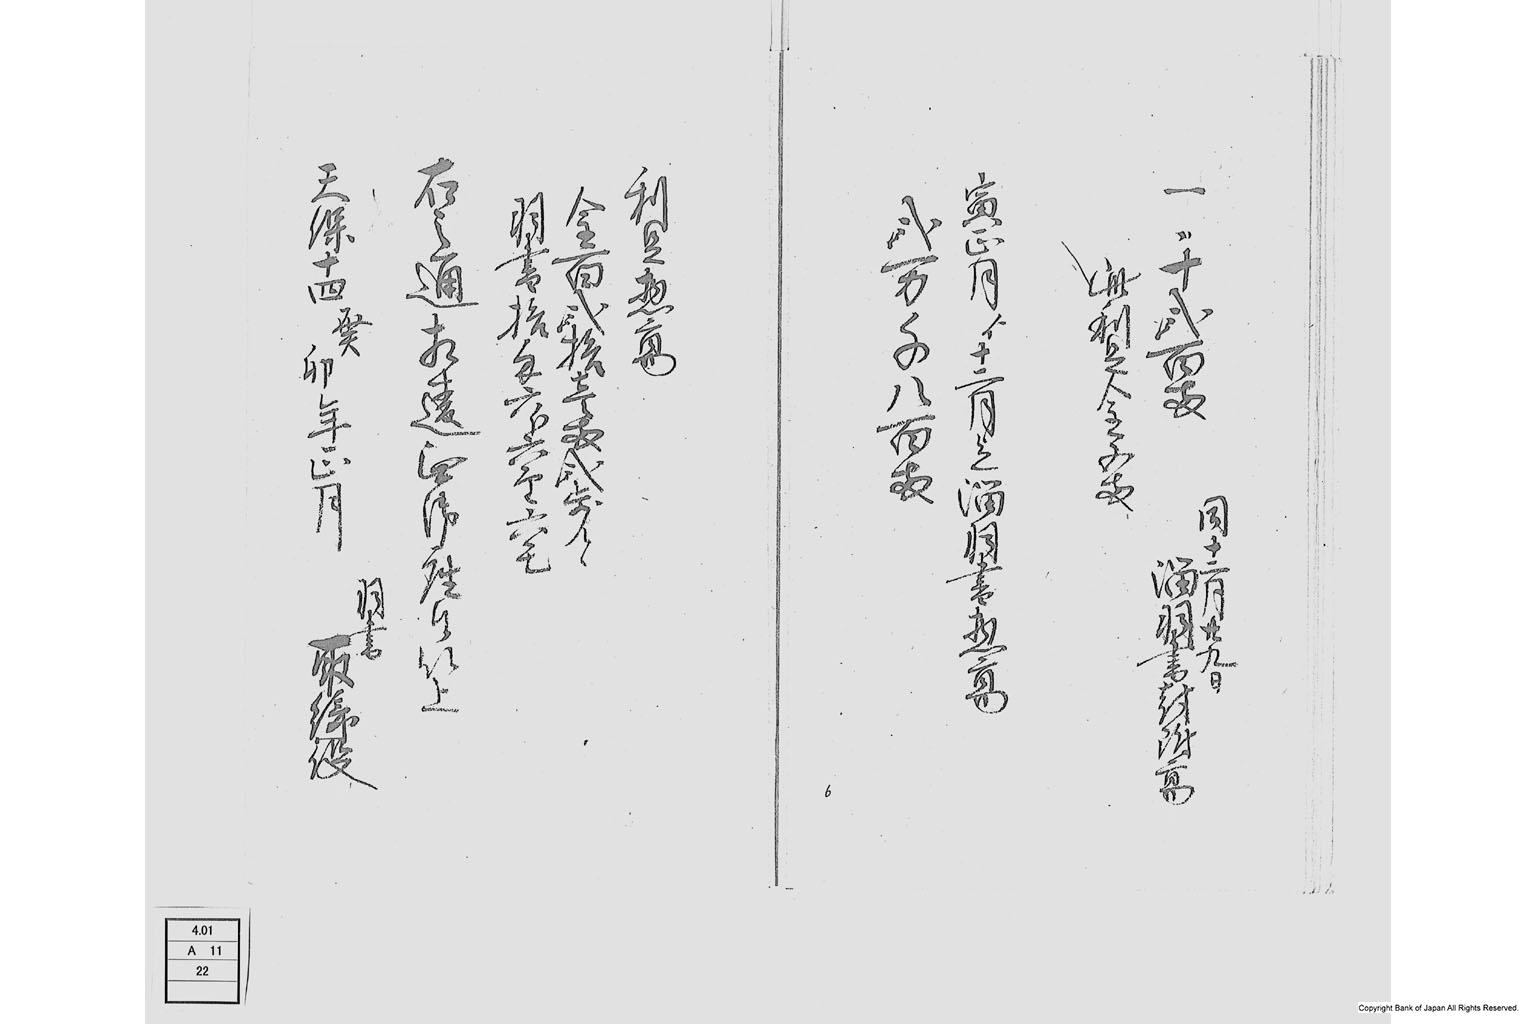 一 〃 千弐百両
同十二月廿九日
溜羽書封附高
此利足金五両
寅正月ゟ十二月迄溜羽書惣高
弐万五千八百両
利足惣高
金百弐拾壱両弐歩ト
羽書拾匁六分六厘六毛
右之通相違無御座候以上
天保十四癸卯年正月
羽書
取締役
6
4.01
A 11
22
Copyright Bank of Japan All Rights Reserved.